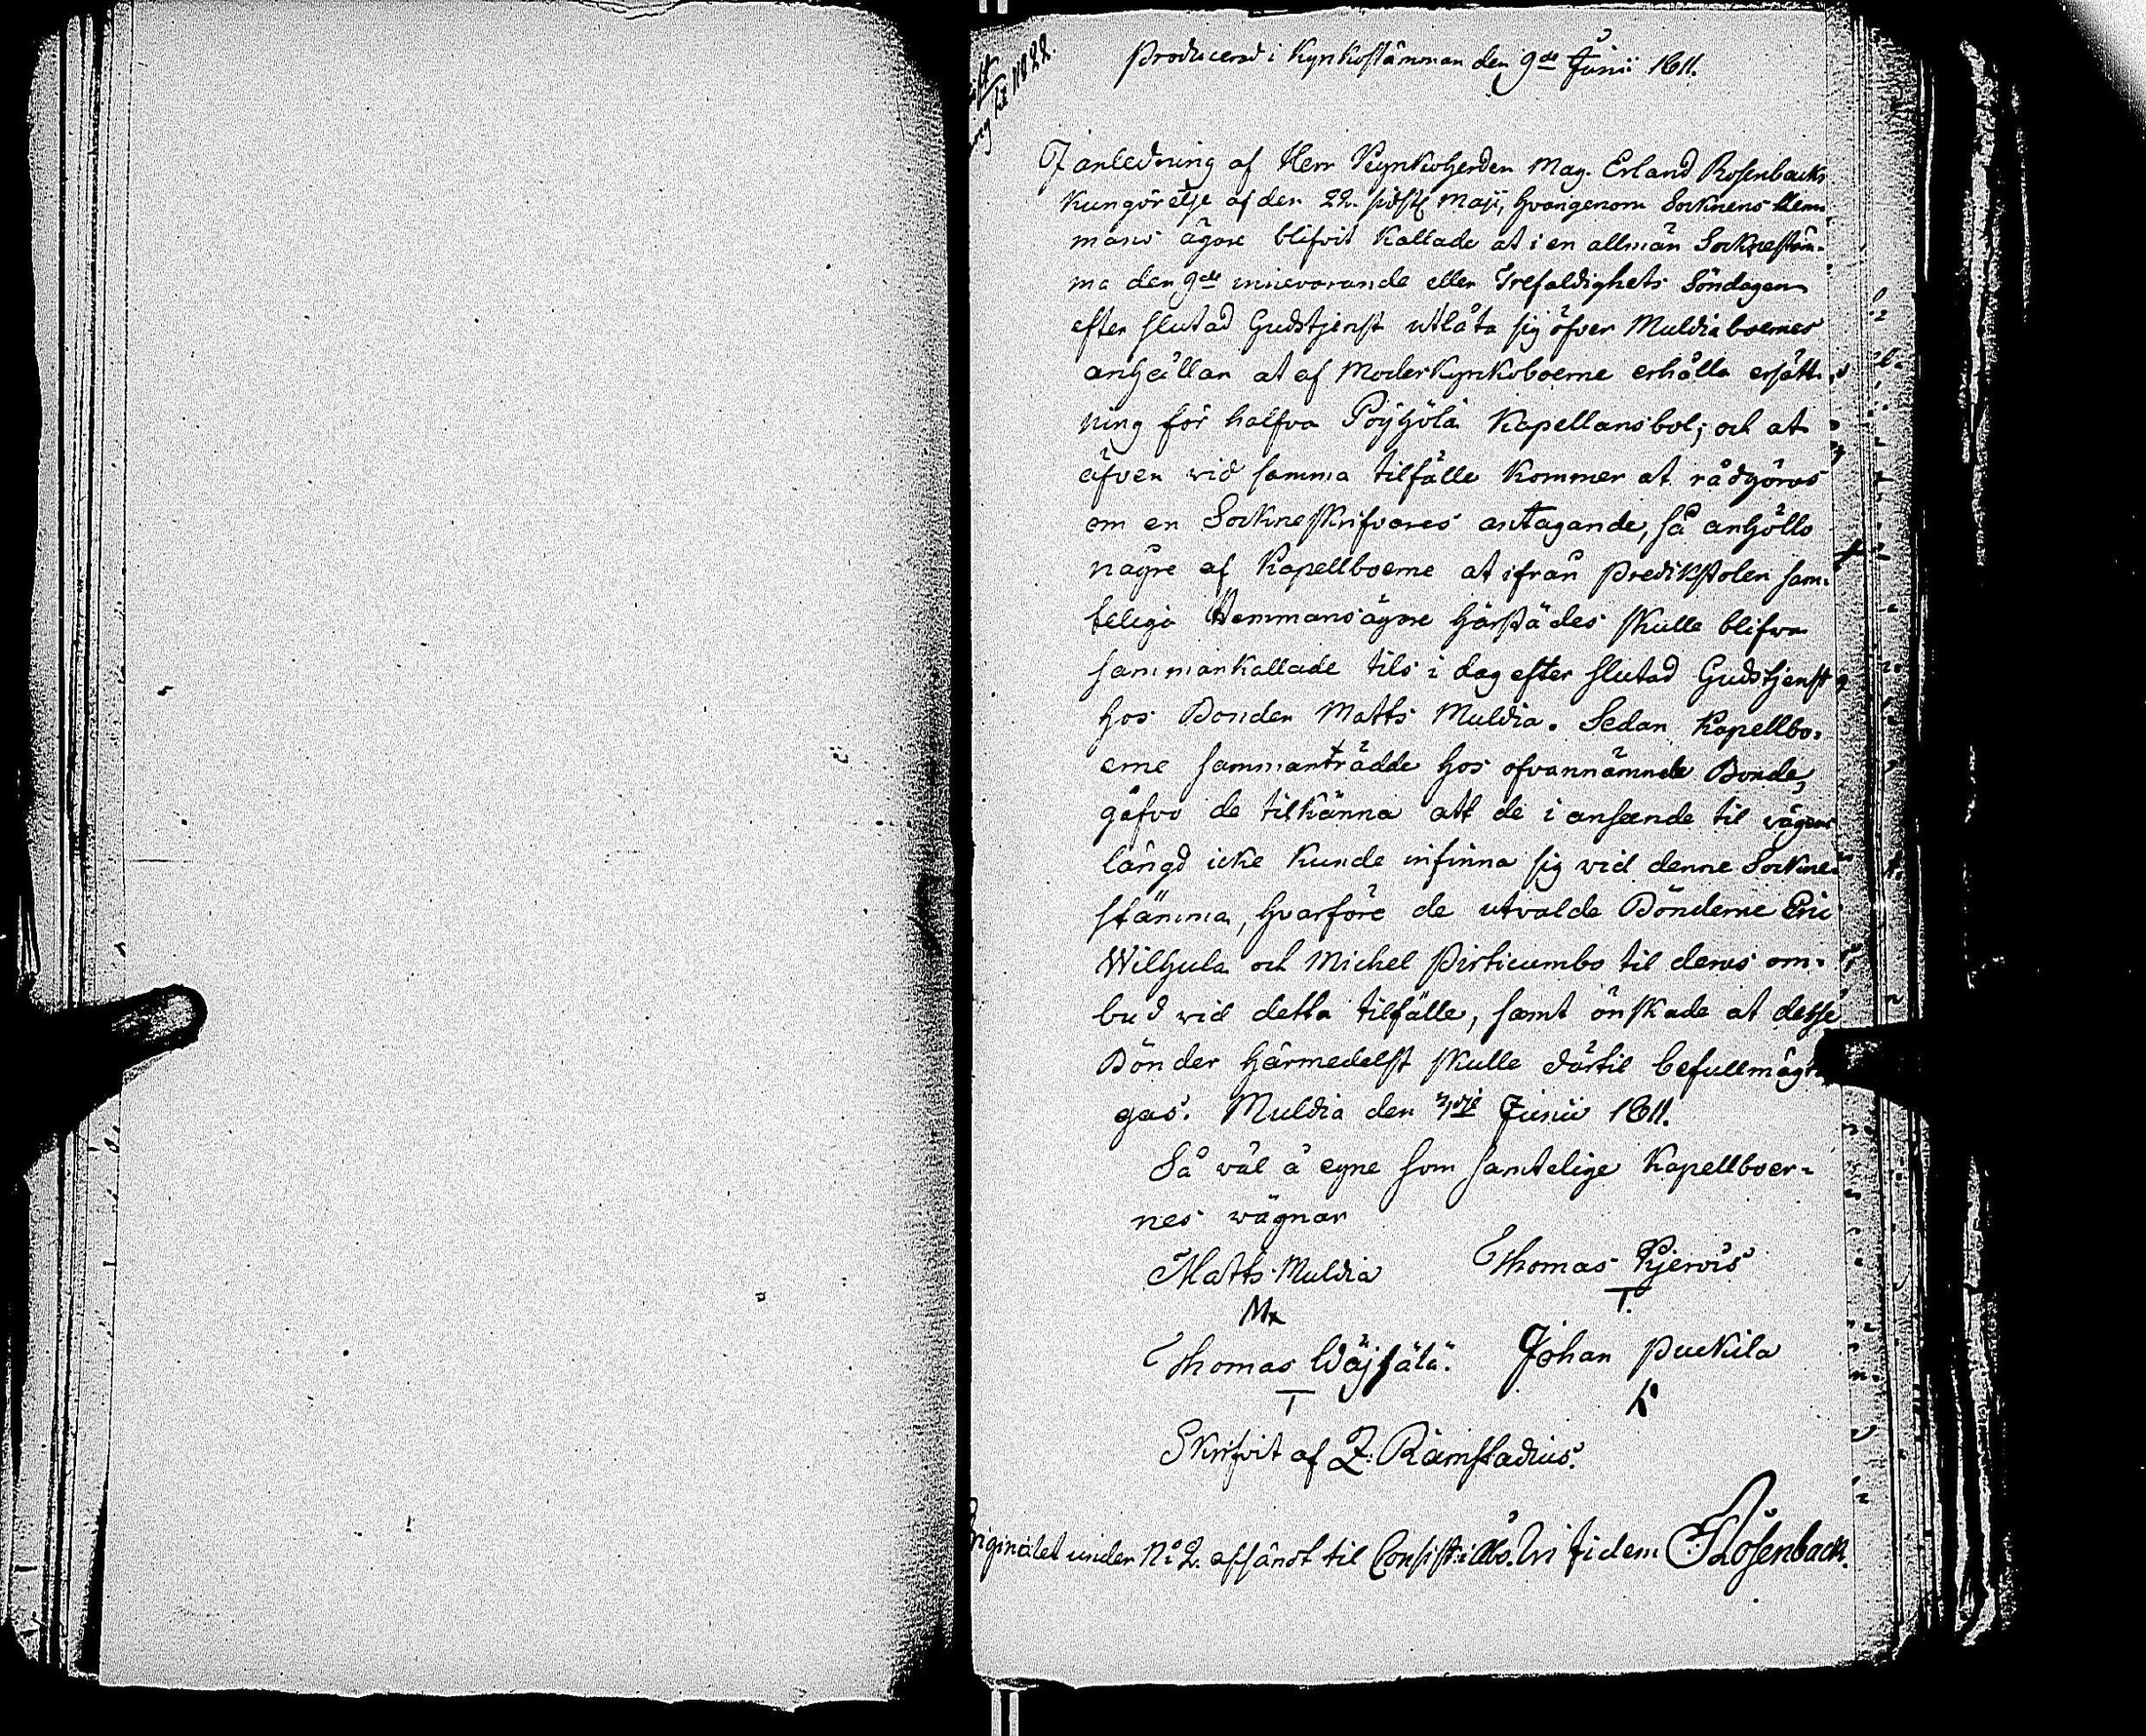 Producerad i Kyrkostämman den 9de Junii 1811.
I anledning af Herr Kyrkoherden Mag. Erland Rosenbacks
Kungörelse af den 22. sidstl Maji, hvarigenom Socknens Hem-
mans ägare blifvit kallade at i en allmän Socknestäm-
ma den 9de innevarande eller Trefaldighets Söndagen
efter slutad Gudstjenst utlåta sig öfver Muldiaboernes
anhållan at af Moderkyrkoboerne erhålla ersätt-
ning för halfva Pöyhölä Kapellansbol; och at
äfven vid samma tilfälle kommer at rådgöras
om en Sockneskrifvares antagande, så anhöllo
några af Kapellboerne at ifrån Predikstolen sam-
telige Hemmansägare härstädes skulle blifva
sammankallade tils i dag efter slutad Gudstjenst
hos Bonden Matts Muldia. Sedan Kapellbo-
erne sammanträdde hos ofvannämnde Bonde,
gåfvo de tilkänna att de i anseende til vägens
längd icke kunde infinna sig vid denne Sockne-
stämma, hvarföre de utvalde Bönderne Eric
Wilhula och Michel Pirticumbo til deras om-
bud vid detta tilfälle, samt önskade at desse
Bönder härmedelst skulle därtil befullmägti-
gas. Muldia den 3dje Junii 1811.
Så väl å egne som samtelige Kapellboer-
nes vägnar
Matts Muldia Thomas Kjervis
M T.
Thomas Wäjsälä. Johan Puckila
T
Skrifvit af Z. Rämstadius.
Originalet under No 2. afsändt til Consist: i Åbo. In fidem Rosenback.